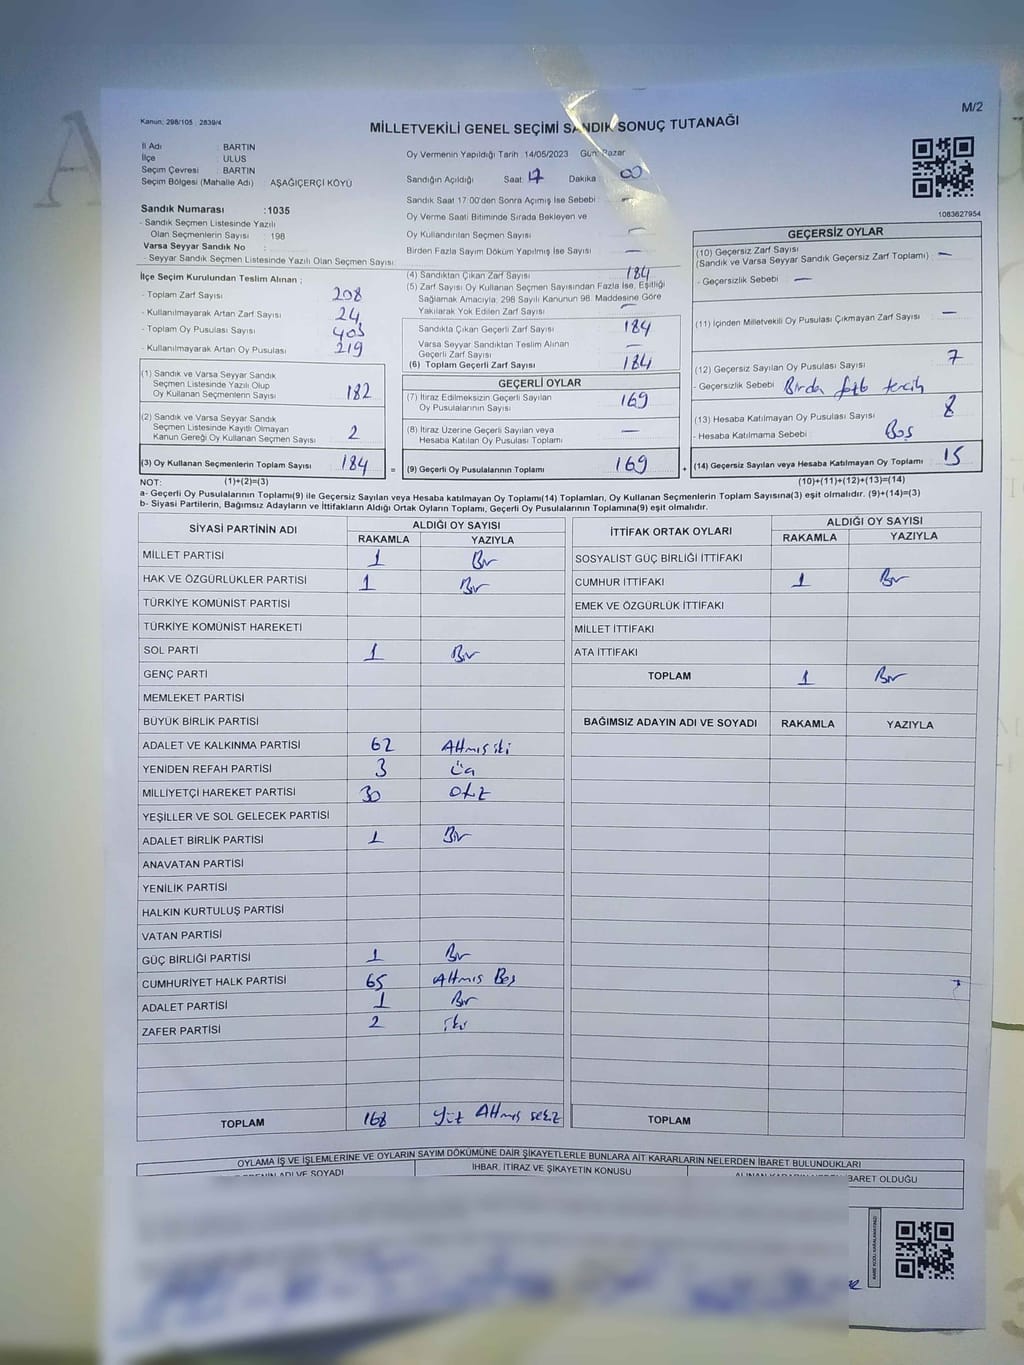 M/2
Kanun: 298/105 ; 2839/4
MİLLETVEKİLİ GENEL SEÇİMİ SANDIK SONUÇ TUTANAĞI
İl Adı : BARTIN
İlçe : ULUS
Seçim Çevresi : BARTIN
Seçim Bölgesi (Mahalle Adı) AŞAĞIÇERÇİ KÖYÜ
Sandık Numarası :1035
- Sandık Seçmen Listesinde Yazılı
Olan Seçmenlerin Sayısı : 198
Varsa Seyyar Sandık No :
- Seyyar Sandık Seçmen Listesinde Yazılı Olan Seçmen Sayısı:
Oy Vermenin Yapıldığı Tarih :14/05/2023 Gün: Pazar
Sandığın Açıldığı Saat 17 Dakika 00
Sandık Saat 17:00'den Sonra Açımış İse Sebebi : —
Oy Verme Saati Bitiminde Sırada Bekleyen ve
Oy Kullandırılan Seçmen Sayısı —
Birden Fazla Sayım Döküm Yapılmış İse Sayısı —
1083627954
İlçe Seçim Kurulundan Teslim Alınan ;
- Toplam Zarf Sayısı 208
- Kullanılmayarak Artan Zarf Sayısı 24
- Toplam Oy Pusulası Sayısı 403
- Kullanılmayarak Artan Oy Pusulası 219
(1) Sandık ve Varsa Seyyar Sandık
Seçmen Listesinde Yazılı Olup
Oy Kullanan Seçmenlerin Sayısı 182
(2) Sandık ve Varsa Seyyar Sandık
Seçmen Listesinde Kayıtlı Olmayan
Kanun Gereği Oy Kullanan Seçmen Sayısı 2
(3) Oy Kullanan Seçmenlerin Toplam Sayısı 184 =
(4) Sandıktan Çıkan Zarf Sayısı 184
(5) Zarf Sayısı Oy Kullanan Seçmen Sayısından Fazla İse, Eşitliği
Sağlamak Amacıyla; 298 Sayılı Kanunun 98. Maddesine Göre
Yakılarak Yok Edilen Zarf Sayısı —
Sandıkta Çıkan Geçerli Zarf Sayısı 184
Varsa Seyyar Sandıktan Teslim Alınan
Geçerli Zarf Sayısı —
(6) Toplam Geçerli Zarf Sayısı 184
GEÇERLİ OYLAR
(7) İtiraz Edilmeksizin Geçerli Sayılan
Oy Pusulalarının Sayısı 169
(8) İtiraz Üzerine Geçerli Sayılan veya
Hesaba Katılan Oy Pusulası Toplamı —
(9) Geçerli Oy Pusulalarının Toplamı 169 +
GEÇERSİZ OYLAR
(10) Geçersiz Zarf Sayısı
(Sandık ve Varsa Seyyar Sandık Geçersiz Zarf Toplamı) —
- Geçersizlik Sebebi —
(11) İçinden Milletvekili Oy Pusulası Çıkmayan Zarf Sayısı —
(12) Geçersiz Sayılan Oy Pusulası Sayısı 7
- Geçersizlik Sebebi tercih
(13) Hesaba Katılmayan Oy Pusulası Sayısı 8
- Hesaba Katılmama Sebebi Boş
(14) Geçersiz Sayılan veya Hesaba Katılmayan Oy Toplamı 15
NOT: (1)+(2)=(3) (10)+(11)+(12)+(13)=(14)
a- Geçerli Oy Pusulalarının Toplamı(9) ile Geçersiz Sayılan veya Hesaba katılmayan Oy Toplamı(14) Toplamları, Oy Kullanan Seçmenlerin Toplam Sayısına(3) eşit olmalıdır. (9)+(14)=(3)
b- Siyasi Partilerin, Bağımsız Adayların ve İttifakların Aldığı Ortak Oyların Toplamı, Geçerli Oy Pusulalarının Toplamına(9) eşit olmalıdır.
SİYASİ PARTİNİN ADI ALDIĞI OY SAYISI
RAKAMLA YAZIYLA
MİLLET PARTİSİ 1 Bir
HAK VE ÖZGÜRLÜKLER PARTİSİ 1 Bir
TÜRKİYE KOMÜNİST PARTİSİ
TÜRKİYE KOMÜNİST HAREKETİ
SOL PARTİ 1 Bir
GENÇ PARTİ
MEMLEKET PARTİSİ
BÜYÜK BİRLİK PARTİSİ
ADALET VE KALKINMA PARTİSİ 62 Altmış iki
YENİDEN REFAH PARTİSİ 3 Üç
MİLLİYETÇİ HAREKET PARTİSİ 30 Otuz
YEŞİLLER VE SOL GELECEK PARTİSİ
ADALET BİRLİK PARTİSİ 1 Bir
ANAVATAN PARTİSİ
YENİLİK PARTİSİ
HALKIN KURTULUŞ PARTİSİ
VATAN PARTİSİ
GÜÇ BİRLİĞİ PARTİSİ 1 Bir
CUMHURİYET HALK PARTİSİ 65 Altmış Beş
ADALET PARTİSİ 1 Bir
ZAFER PARTİSİ 2 iki
TOPLAM 168 Yüz Altmış sekiz
İTTİFAK ORTAK OYLARI ALDIĞI OY SAYISI
RAKAMLA YAZIYLA
SOSYALİST GÜÇ BİRLİĞİ İTTİFAKI
CUMHUR İTTİFAKI 1 Bir
EMEK VE ÖZGÜRLÜK İTTİFAKI
MİLLET İTTİFAKI
ATA İTTİFAKI
TOPLAM 1 Bir
BAĞIMSIZ ADAYIN ADI VE SOYADI RAKAMLA YAZIYLA
TOPLAM
OYLAMA İŞ VE İŞLEMLERİNE VE OYLARIN SAYIM DÖKÜMÜNE DAİR ŞİKAYETLERLE BUNLARA AİT KARARLARIN NELERDEN İBARET BULUNDUKLARI
ADI VE SOYADI İHBAR, İTİRAZ VE ŞİKAYETİN KONUSU İBARET OLDUĞU